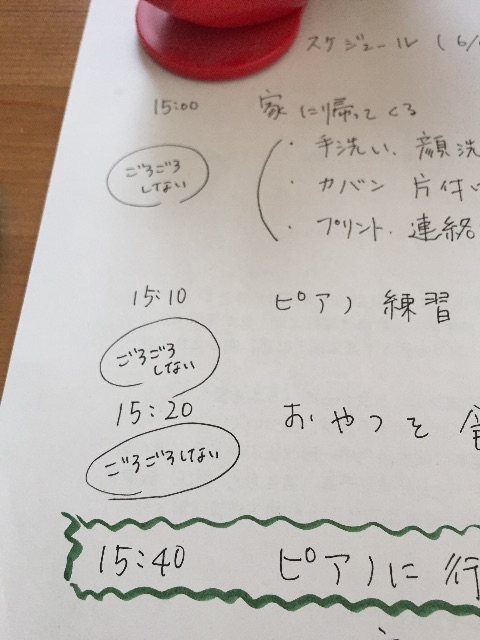 スケジュール (6/
15:00 家に帰ってくる
ごろごろ
しない
・手洗い、顔洗
・カバン 片付
・プリント、連絡
15:10 ピアノ 練習
ごろごろ
しない
15:20 おやつを
ごろごろしない
15:40 ピアノに 行